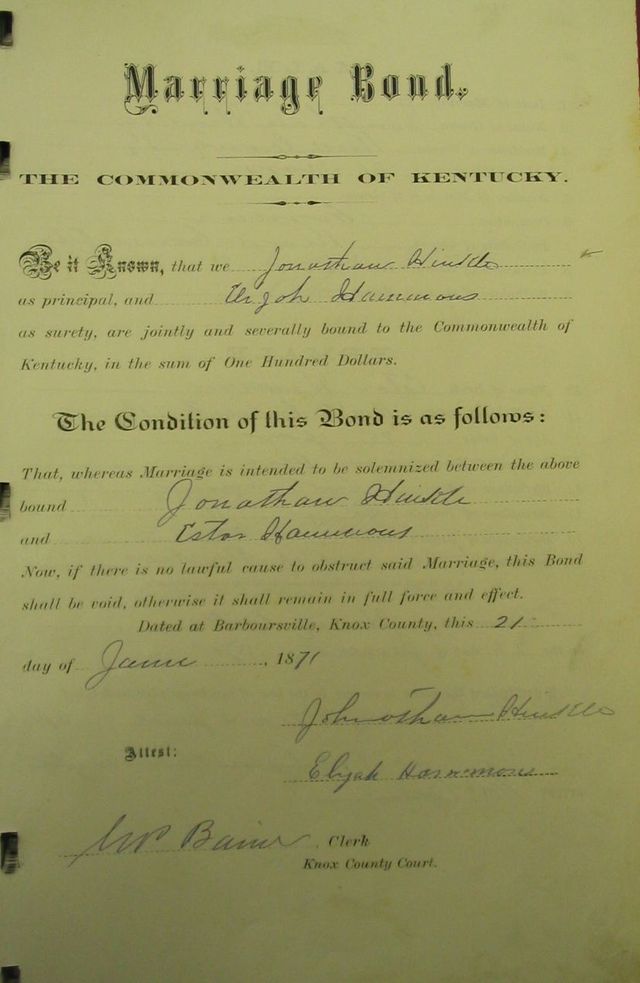 Marriage Bond.
THE COMMONWEALTH OF KENTUCKY.
Be it Known, that we Jonathan Hinkle
as principal, and Elijah Hammons
as surety, are jointly and severally bound to the Commonwealth of
Kentucky, in the sum of One Hundred Dollars.
The Condition of this Bond is as follows:
That, whereas Marriage is intended to be solemnized between the above
bound Jonathan Hinkle
and Ester Hammons
Now, if there is no lawful cause to obstruct said Marriage, this Bond
shall be void, otherwise it shall remain in full force and effect.
Dated at Barboursville, Knox County, this 21
day of , 1871
Johnathan Hinkle
Attest:
Elijah Hammons
Clerk
Knox County Court.